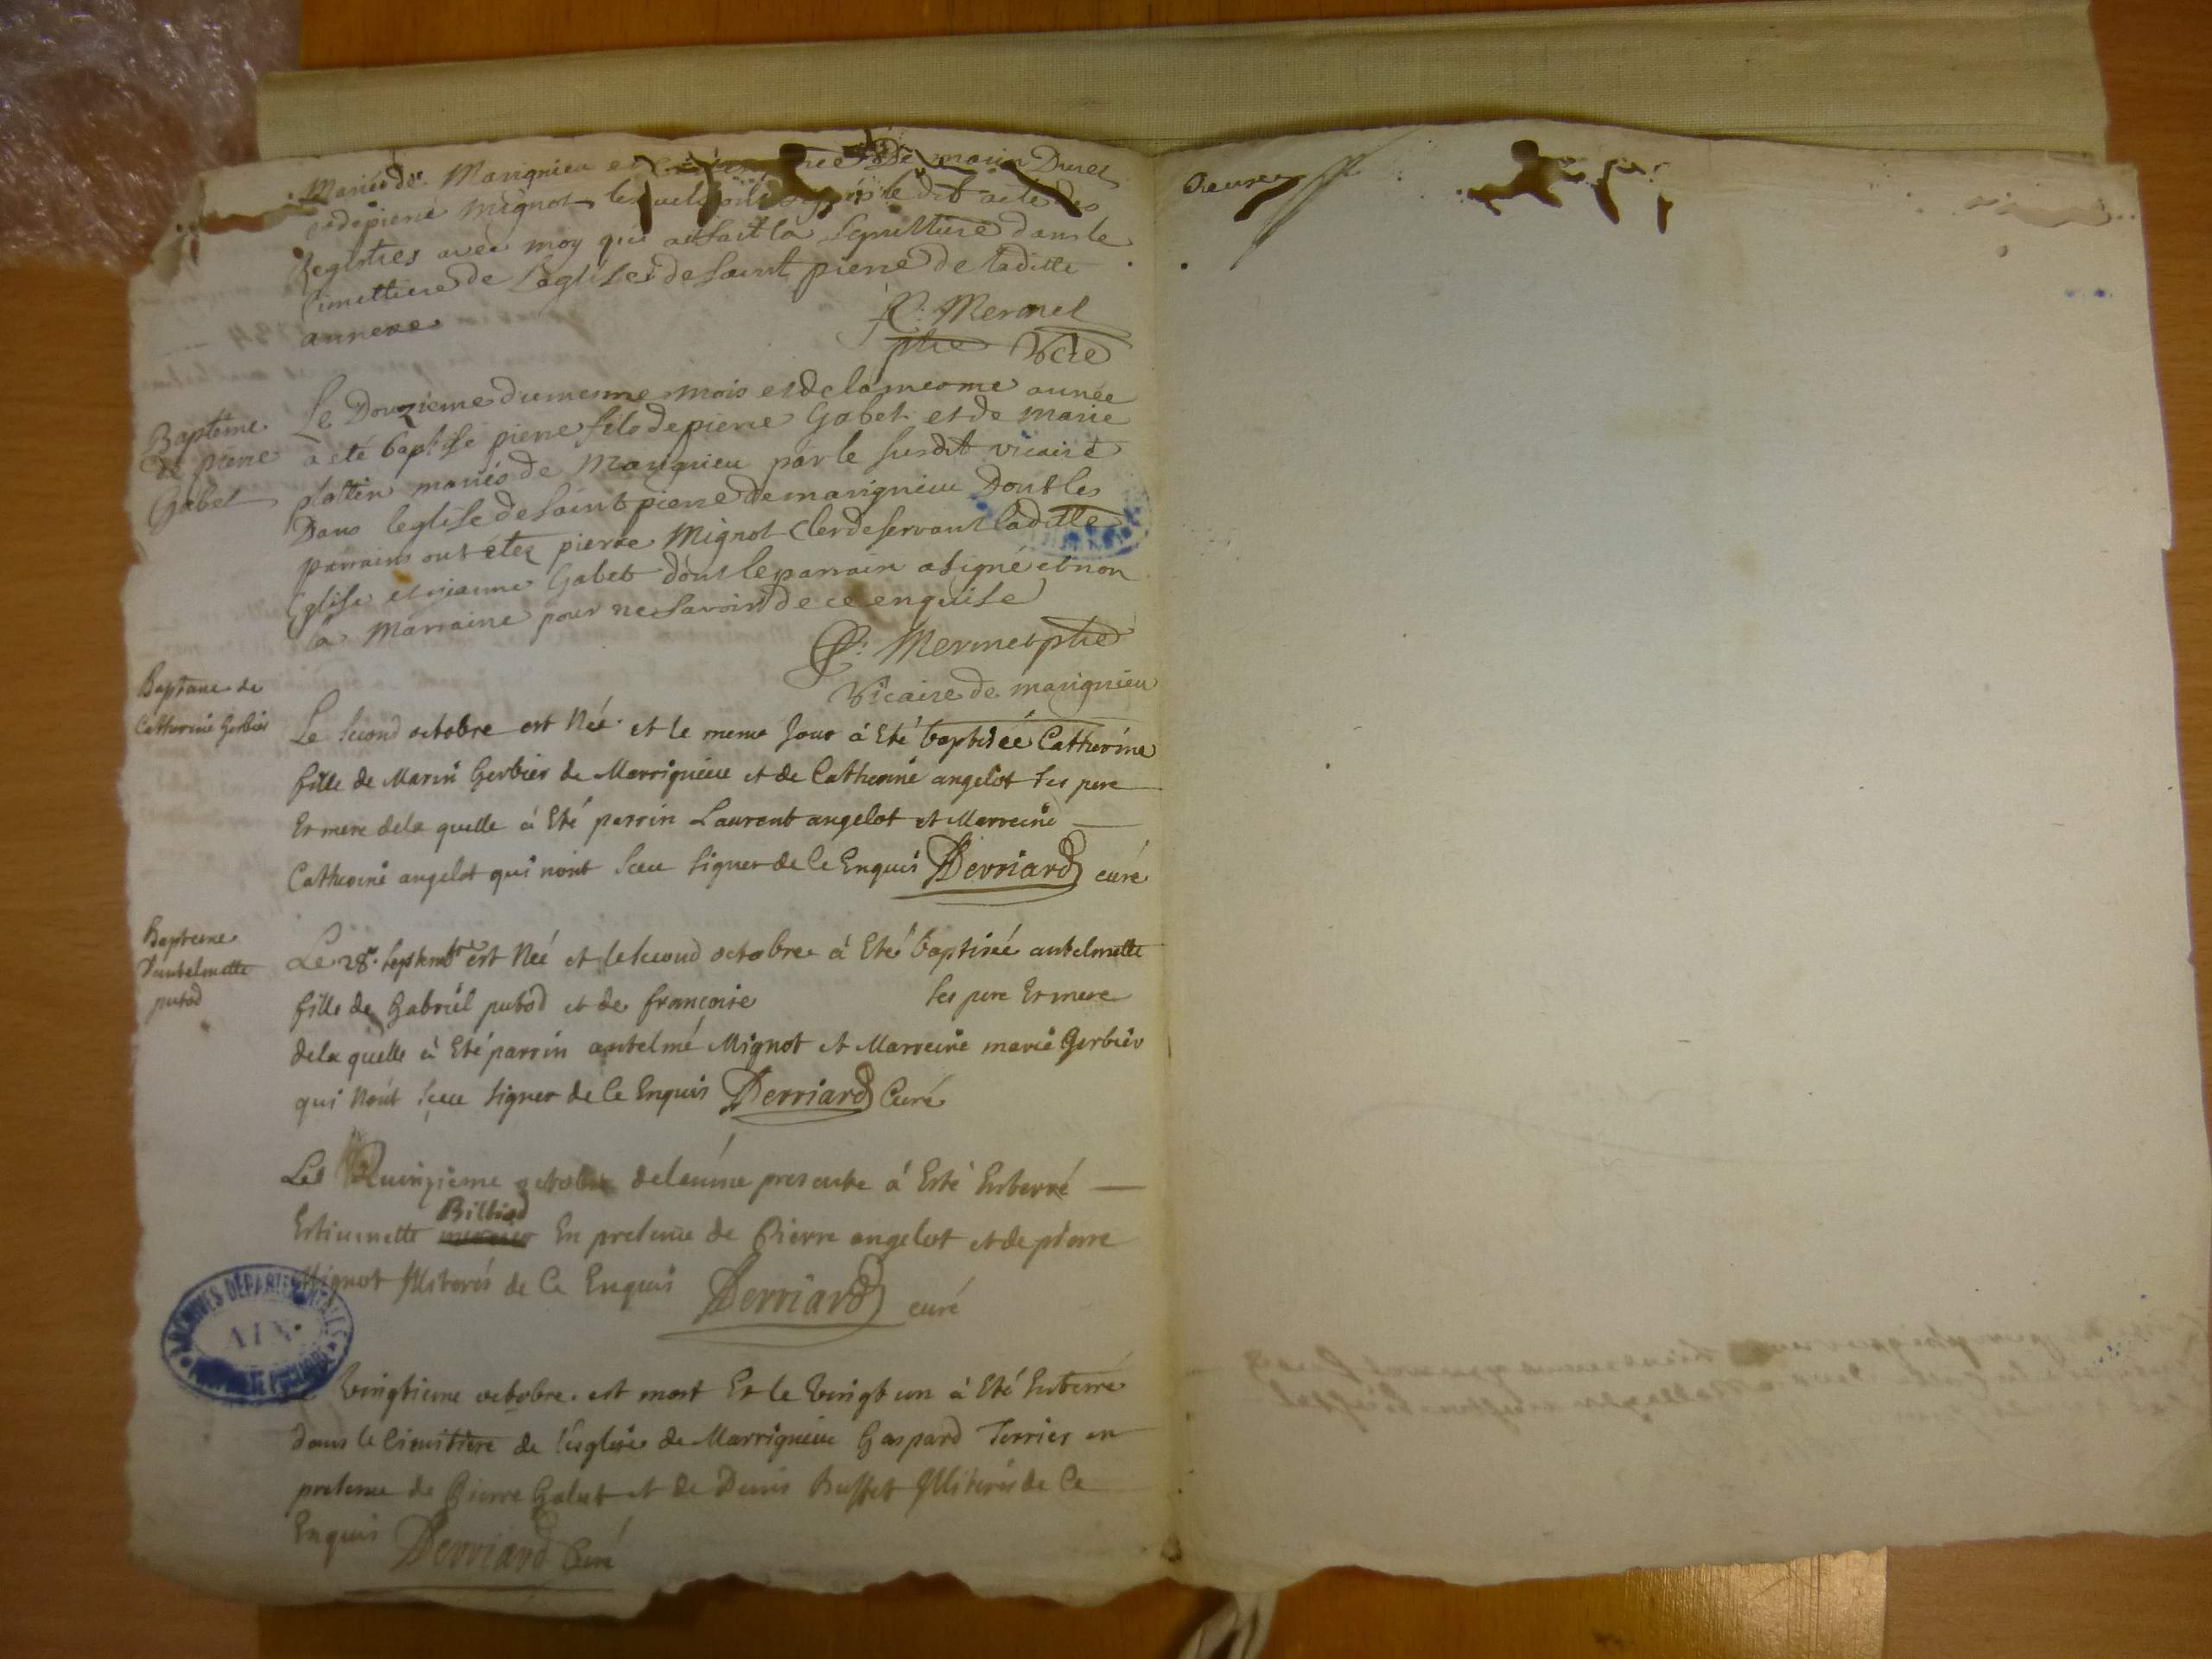 Mariés de Marignieu et de marin Duret
et de pierre Mignot lesquels ont signé le dit acte des
Registres avec moy qui ai fait la sepulture dans le
Cimettiere de L'aglise de Saint pierre de laditte
annexe
P: Mermet
ptre Vcre
Baptême
de pierre
Gabet
Le Douzieme du mesme mois et de la mesme année
a eté baptisé pierre fils de pierre Gabet et de marie
plattin mariés de Marignieu par le susdit vicaire
Dans leglise de saint pierre de marignieu Dont les
parrains ont étez pierre Mignot Cler deservant laditte
Eglise et jeanne Gabet dont le parrain a signé et non
la Marraine pour ne savoir de ce enquise
P: Mermet ptre
Vicaire de marignieu
Baptame de
Catherine Gerbier
Le second octobre est Née et le meme Jour à Eté baptiséé Catherine
fille de Marin Gerbier de Marrignieu et de Catherine angelot ses pere
Et mere dela quelle à Eté parrin Laurent angelot et Marreine
Catherine angelot qui nont sceu signer de Ce Enquis Derriard curé
Bapteme
D'antelmette
putod
Le 28e. septembre est Néé et le second octobre à Eté baptiséé antelmette
fille de Gabriel putod et de françoise ses pere Et mere
dela quelle à Eté parrin antelme Mignot et Marreine marie Gerbier
qui Nont sceu signer de Ce Enquis Derriard Curé
Le Quinzieme octobre de lannée presente à Esté Enterré
Estiennette Billiod En presence de Pierre angelot et de pierre
Mignot Illiterés de Ce Enquis Derriard curé
ARCHIVES DÉPARTEMENTALES
AIN
Le Vingtieme octobre est mort Et le Vingt un à Eté Enterré
dans le Cimitiere de l'esglise de Marrignieu Gaspard Terrier en
presence de Pierre Gabet et de Denis Buffet Illiterés de Ce
Enquis Derriard Curé